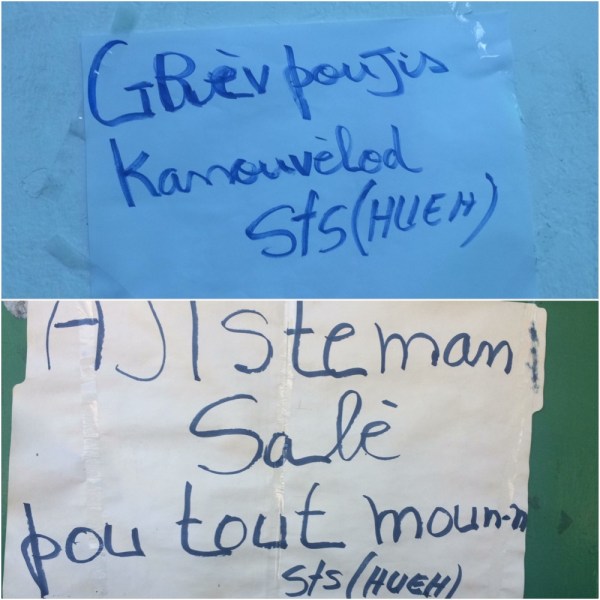 GRèv pou jis
kanouvèlod
sts (HUEH)
AJISteman
Salè
pou tout moun-n
sts (HUEH)